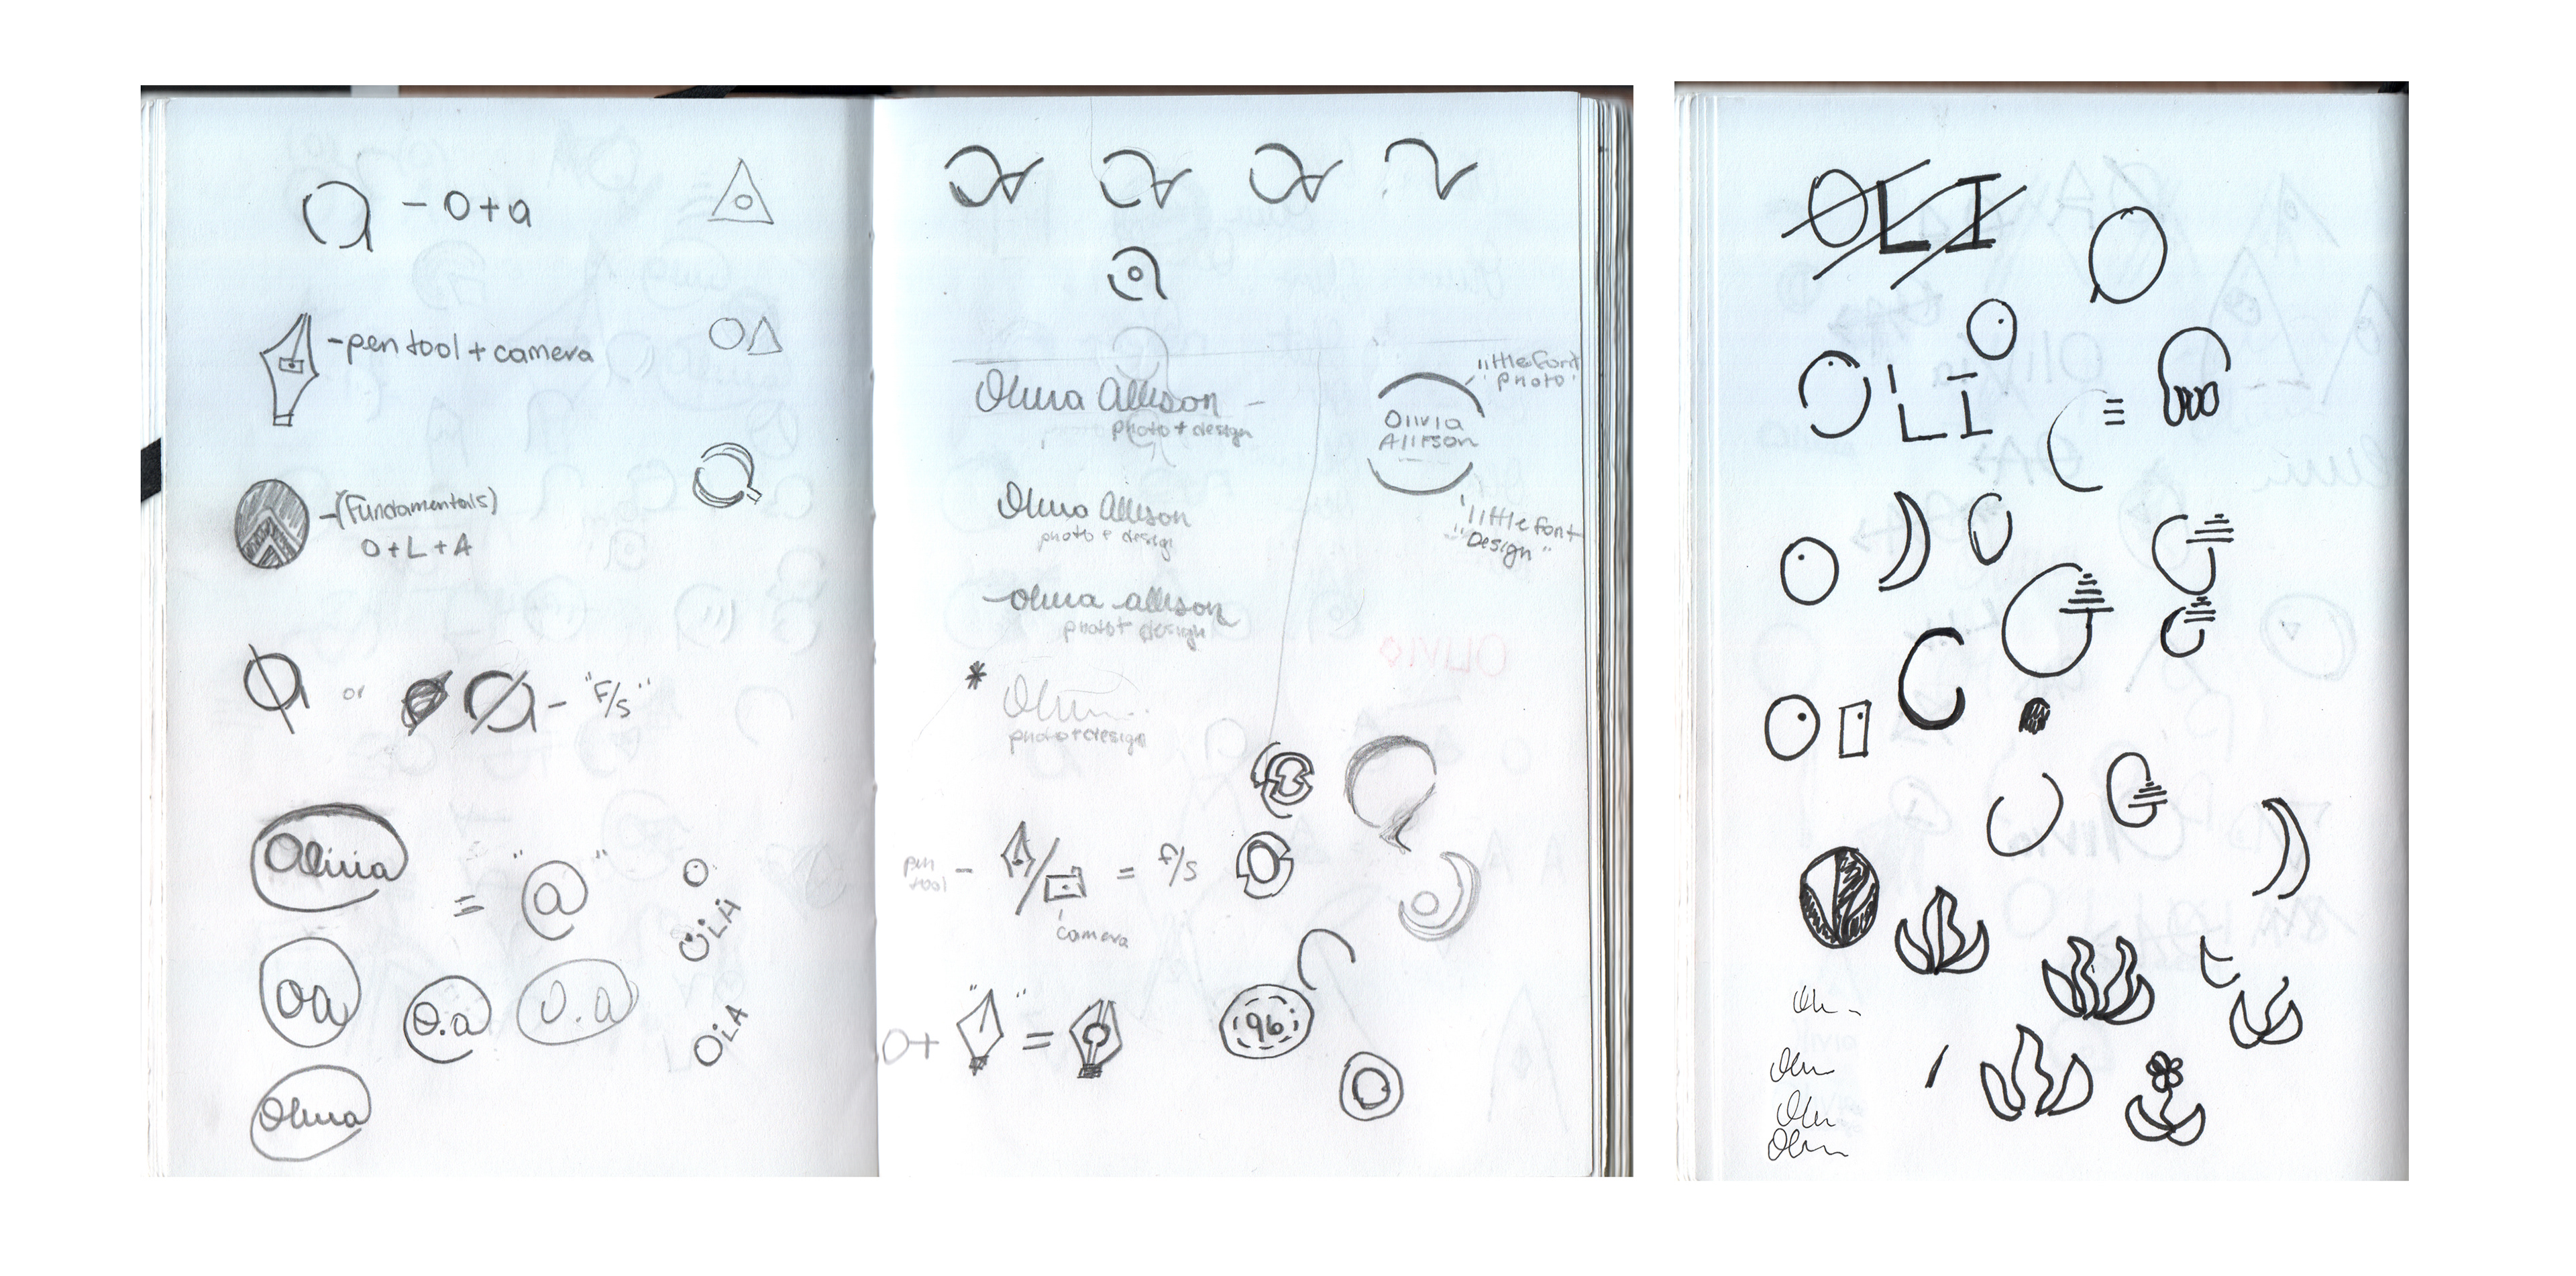 - O+a
- pen tool + camera
- (Fundamentals)
O + L + A
or
- "F/s"
Olivia
= "@"
oa
O.a
O.a
OLA
OLiA
Olivia
Olivia Allison -
photo + design
Olivia Allison
photo + design
Olivia Allison
photo + design
*
photo + design
"little font
photo"
Olivia
Allison
"little font
Design"
OLIVIO
pen
tool
-
/
= F/s
camera
O+ " " =
96
OLI
OLI